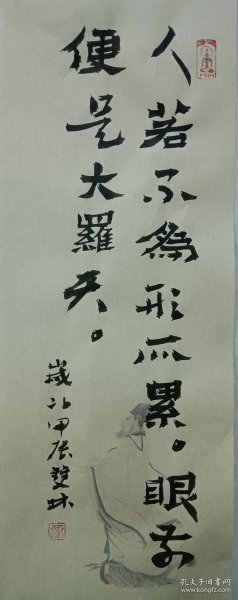 人若不為形所累。眼前
便是大羅天。
歲次甲辰雙林
孔夫子旧书网